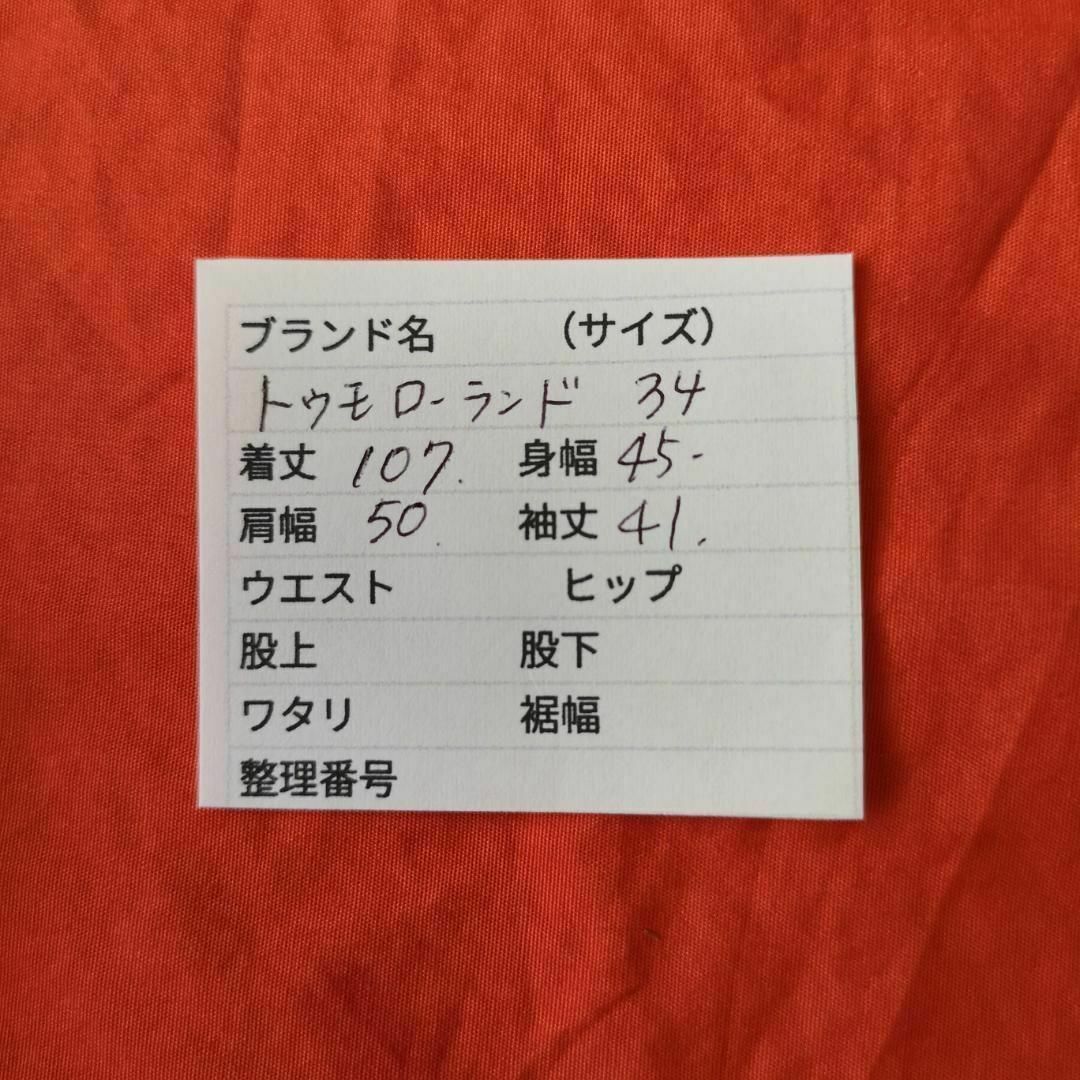 ブランド名 （サイズ）
トゥモローランド 34
着丈 107. 身幅 45-
肩幅 50. 袖丈 41.
ウエスト ヒップ
股上 股下
ワタリ 裾幅
整理番号